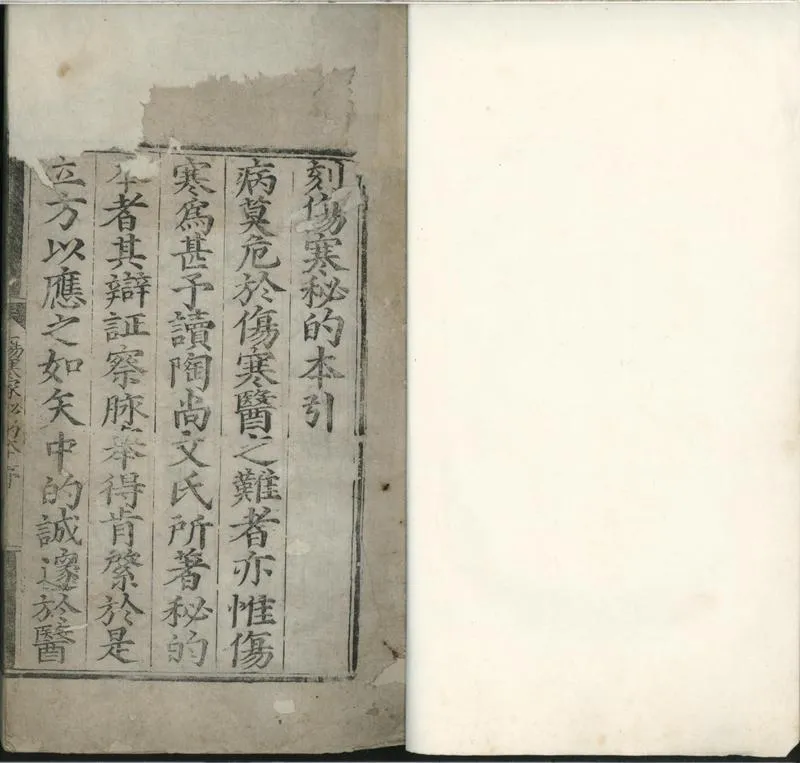 刻傷寒秘的本引
病莫危於傷寒醫之難者亦惟傷
寒爲甚予讀陶尚文氏所著秘的
本者其辯証察脉奉得肯綮於是
立方以應之如矢中的誠邃於醫
傷寒家秘的本序